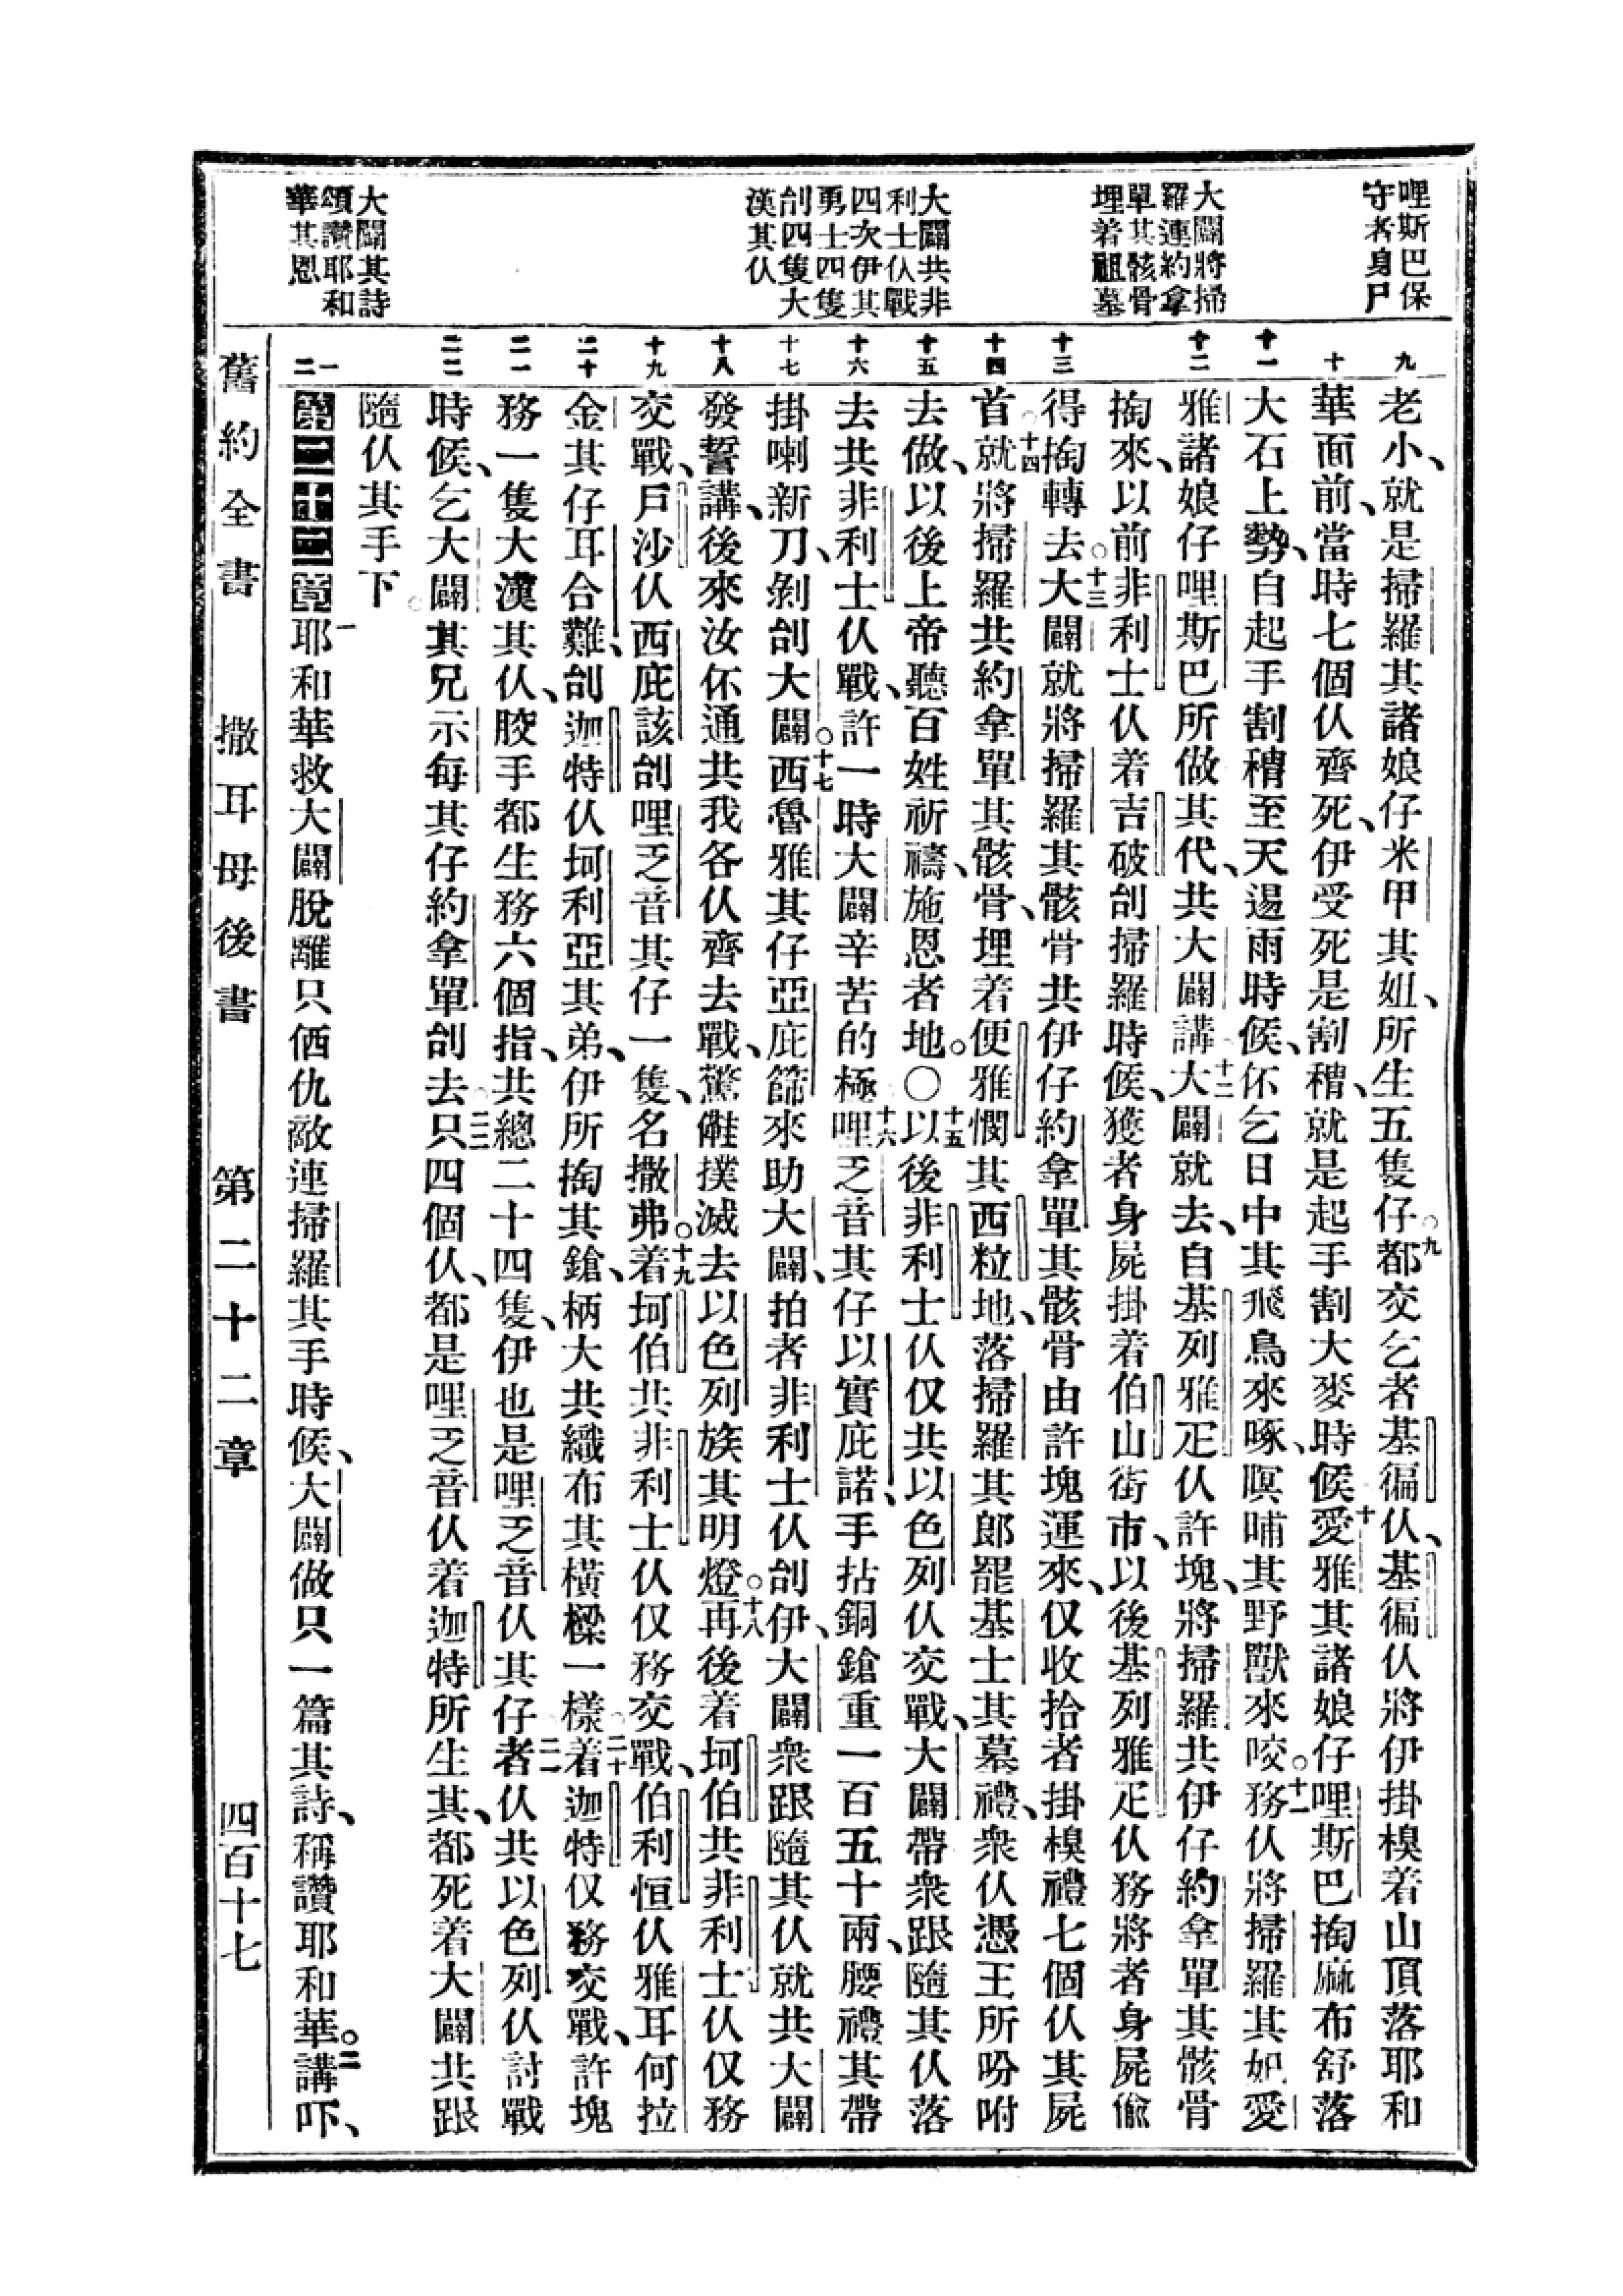 哩斯巴保
守者身尸
大闢將掃
羅連約拿
單其骸骨
埋着祖墓
大闢共非
利士仫戰
四次伊其
勇士四隻
刣四隻大
漢其仫
大闢其詩
頌讚耶和
華其恩
九
十
十一
十二
十三
十四
十五
十六
十七
十八
十九
二十
二一
二二
一
二
老小、就是掃羅其諸娘仔米甲其姐、所生五隻仔。九都交乞者基徧仫、基徧仫將伊掛槺着山頂落耶和
華面前、當時七個仫齊死、伊受死是割䆀、就是起手割大麥時候十愛雅其諸娘仔哩斯巴掏麻布舒落
大石上勢、自起手割䆀至天逿雨時候、伓乞日中其飛鳥來啄、暝晡其野獸來咬。十一務仫將掃羅其妃愛
雅諸娘仔哩斯巴所做其代、共大闢講十二大闢就去、自基列雅疋仫許塊、將掃羅共伊仔約拿單其骸骨
掏來、以前非利士仫着吉破刣掃羅時候、獲者身屍掛着伯山街市、以後基列雅疋仫務將者身屍偷
得掏轉去。十三大闢就將掃羅其骸骨共伊仔約拿單其骸骨由許塊運來、仅收拾者掛槺禮七個仫其屍
首。十四就將掃羅共約拿單其骸骨、埋着便雅憫其西粒地、落掃羅其郎罷基士其墓禮、衆仫憑王所吩咐
去做、以後上帝聽百姓祈禱、施恩者地。〇十五以後非利士仫仅共以色列仫交戰、大闢帶衆跟隨其仫落
去共非利士仫戰、許一時大闢辛苦的極十六哩乏音其仔以實庇諾、手拈銅鎗重一百五十兩、腰禮其帶
掛喇新刀、剝刣大闢。十七西魯雅其仔亞庇篩來助大闢、拍者非利士仫刣伊、大闢衆跟隨其仫就共大闢
發誓講、後來汝伓通共我各仫齊去戰、驚𣍐撲滅去以色列族其明燈。十八再後着坷伯共非利士仫仅務
交戰、戶沙仫西庇該刣哩乏音其仔一隻、名撒弗。十九着坷伯共非利士仫仅務交戰、伯利恒仫雅耳何拉
金其仔耳合難、刣迦特仫坷利亞其弟、伊所掏其鎗、柄大共織布其橫樑一樣二十着迦特仅務交戰、許塊
務一隻大漢其仫、骹手都生務六個指、共總二十四隻、伊也是哩乏音仫其仔二一者仫共以色列仫討戰
時候、乞大闢其兄示每其仔約拿單刣去二二只四個仫、都是哩乏音仫着迦特所生其、都死着大闢共跟
隨仫其手下。
第二十二章一耶和華救大闢脫離只伵仇敵連掃羅其手時候、大闢做只一篇其詩、稱讚耶和華。二講吓、
舊約全書　撒耳母後書　第二十二章　四百十七